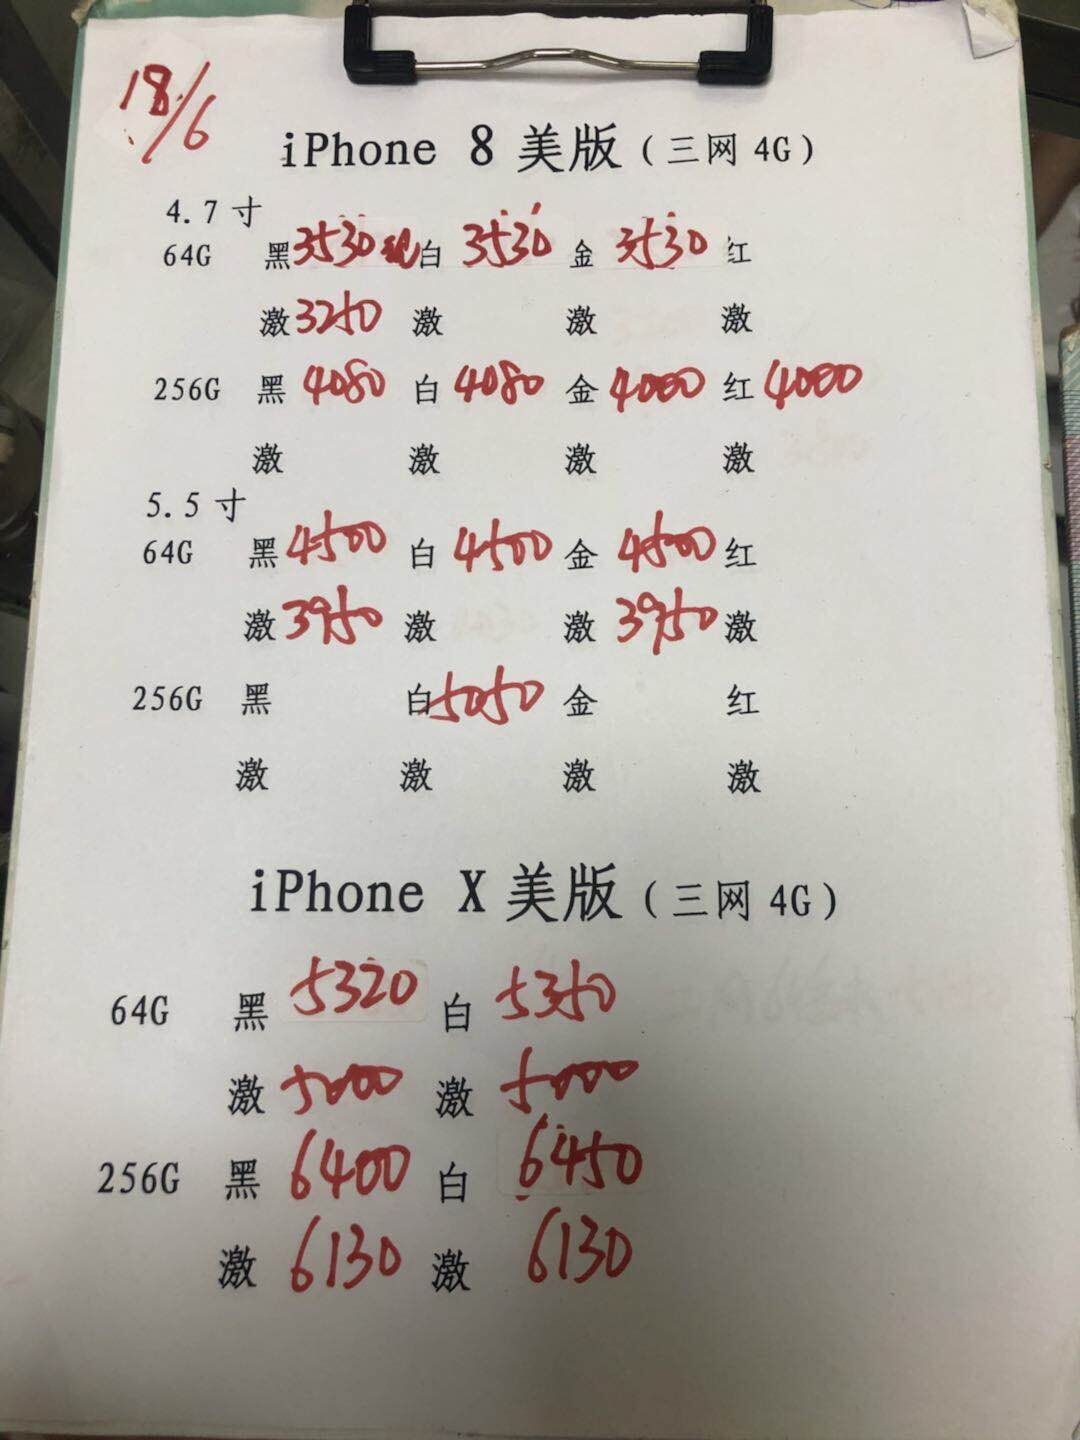 18/6
iPhone 8 美版（三网 4G）
4.7 寸
64G 黑 3530 现 白 3530 金 3530 红
激 3250 激 激 激
256G 黑 4080 白 4080 金 4000 红 4000
激 激 激 激
5.5 寸
64G 黑 4500 白 4500 金 4500 红
激 3950 激 激 3950 激
256G 黑 白 5050 金 红
激 激 激 激
iPhone X 美版（三网 4G）
64G 黑 5320 白 5350
激 5000 激 5000
256G 黑 6400 白 6450
激 6130 激 6130